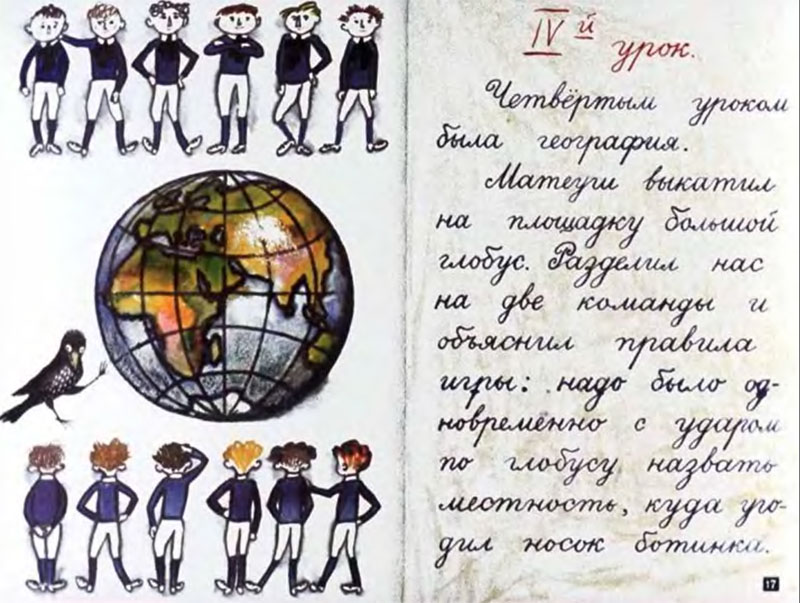 IV й
урок.
Четвёртым уроком
была география.
Матеуш выкатил
на площадку большой
глобус. Разделил нас
на две команды и
объяснил правила
игры: надо было од-
новременно с ударом
по глобусу назвать
местность, куда уго-
дил носок ботинка.
17